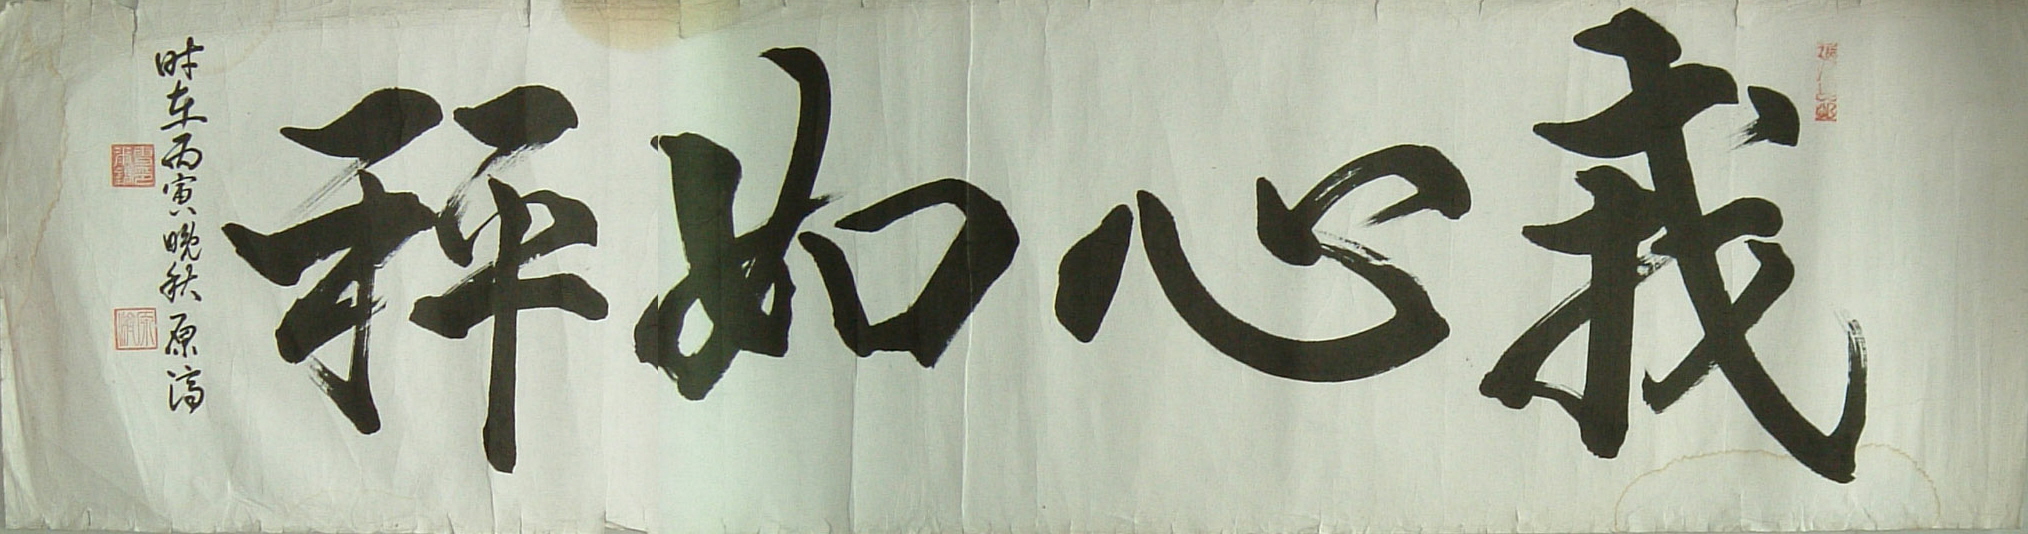 我心如秤
时在丙寅晚秋 原